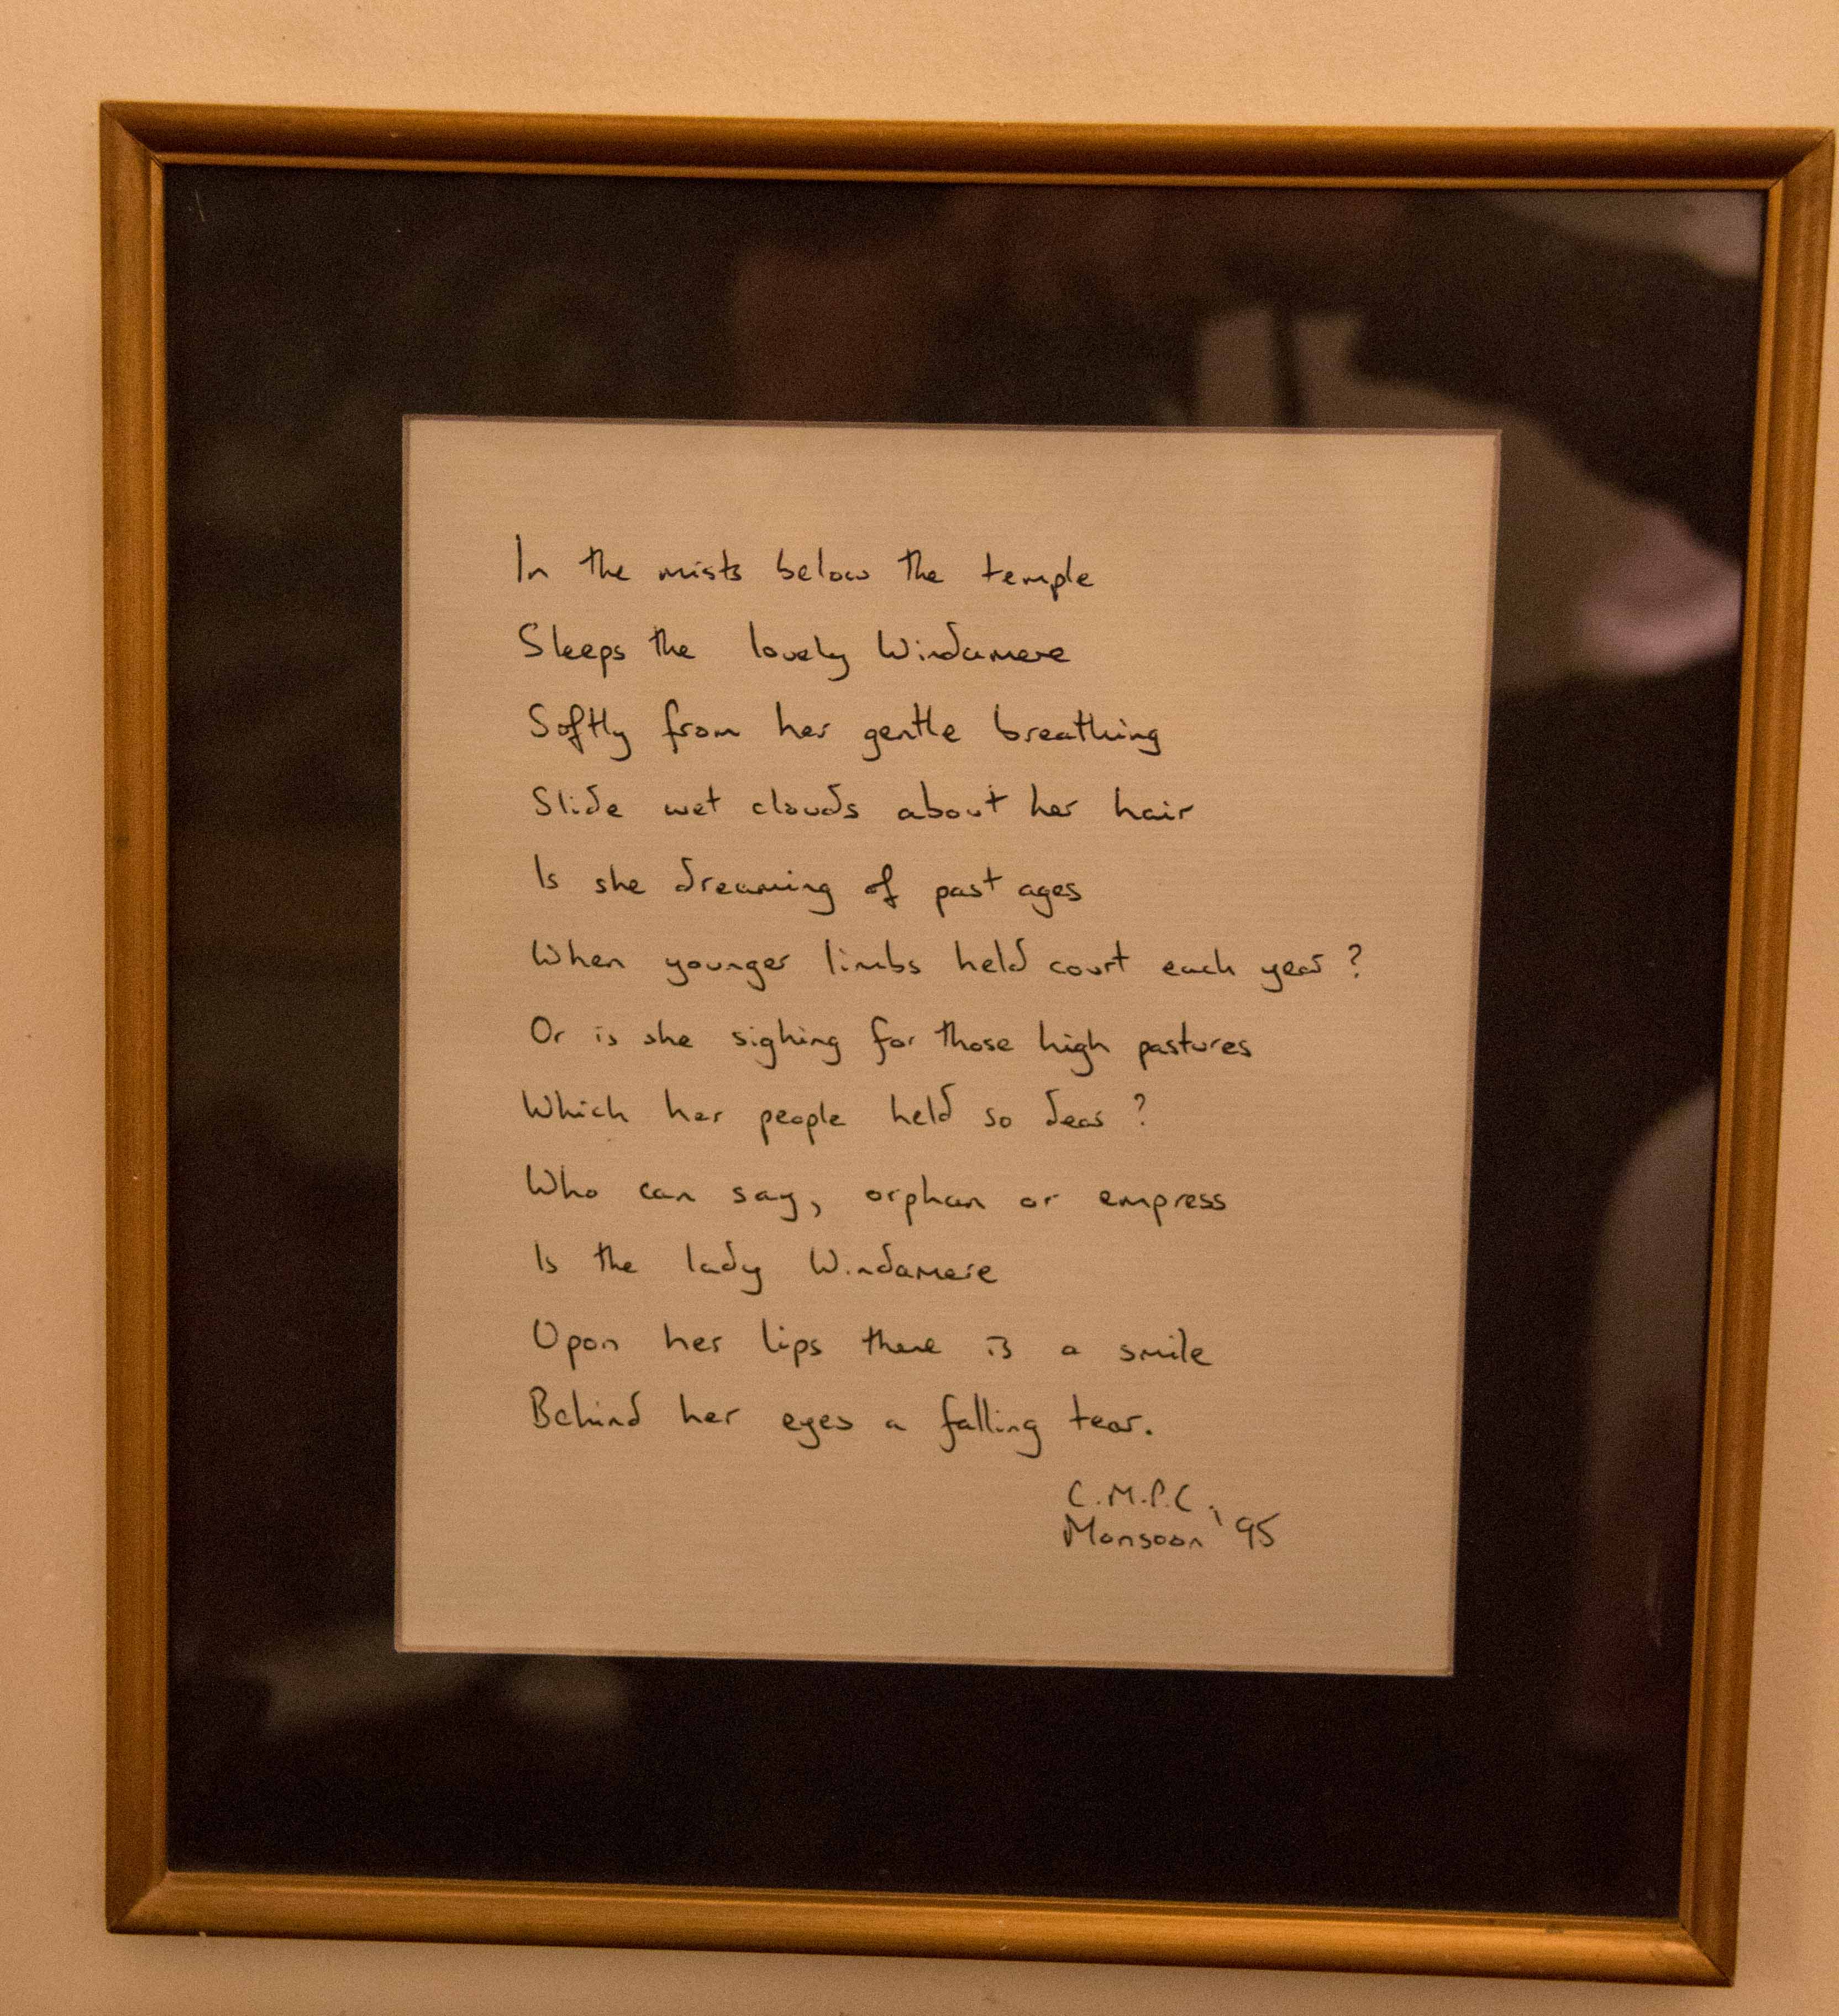 In the mists below the temple
Sleeps the lovely Windamere
Softly from her gentle breathing
Slide wet clouds about her hair
Is she dreaming of past ages
When younger limbs held court each year ?
Or is she sighing for those high pastures
Which her people held so dear ?
Who can say, orphan or empress
Is the lady Windamere
Upon her lips there is a smile
Behind her eyes a falling tear.
C.M.P.C.
Monsoon '95